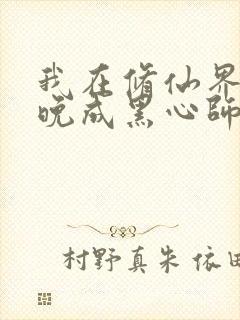 我在脩仙界
晚成黑心師
村野真朱 依田